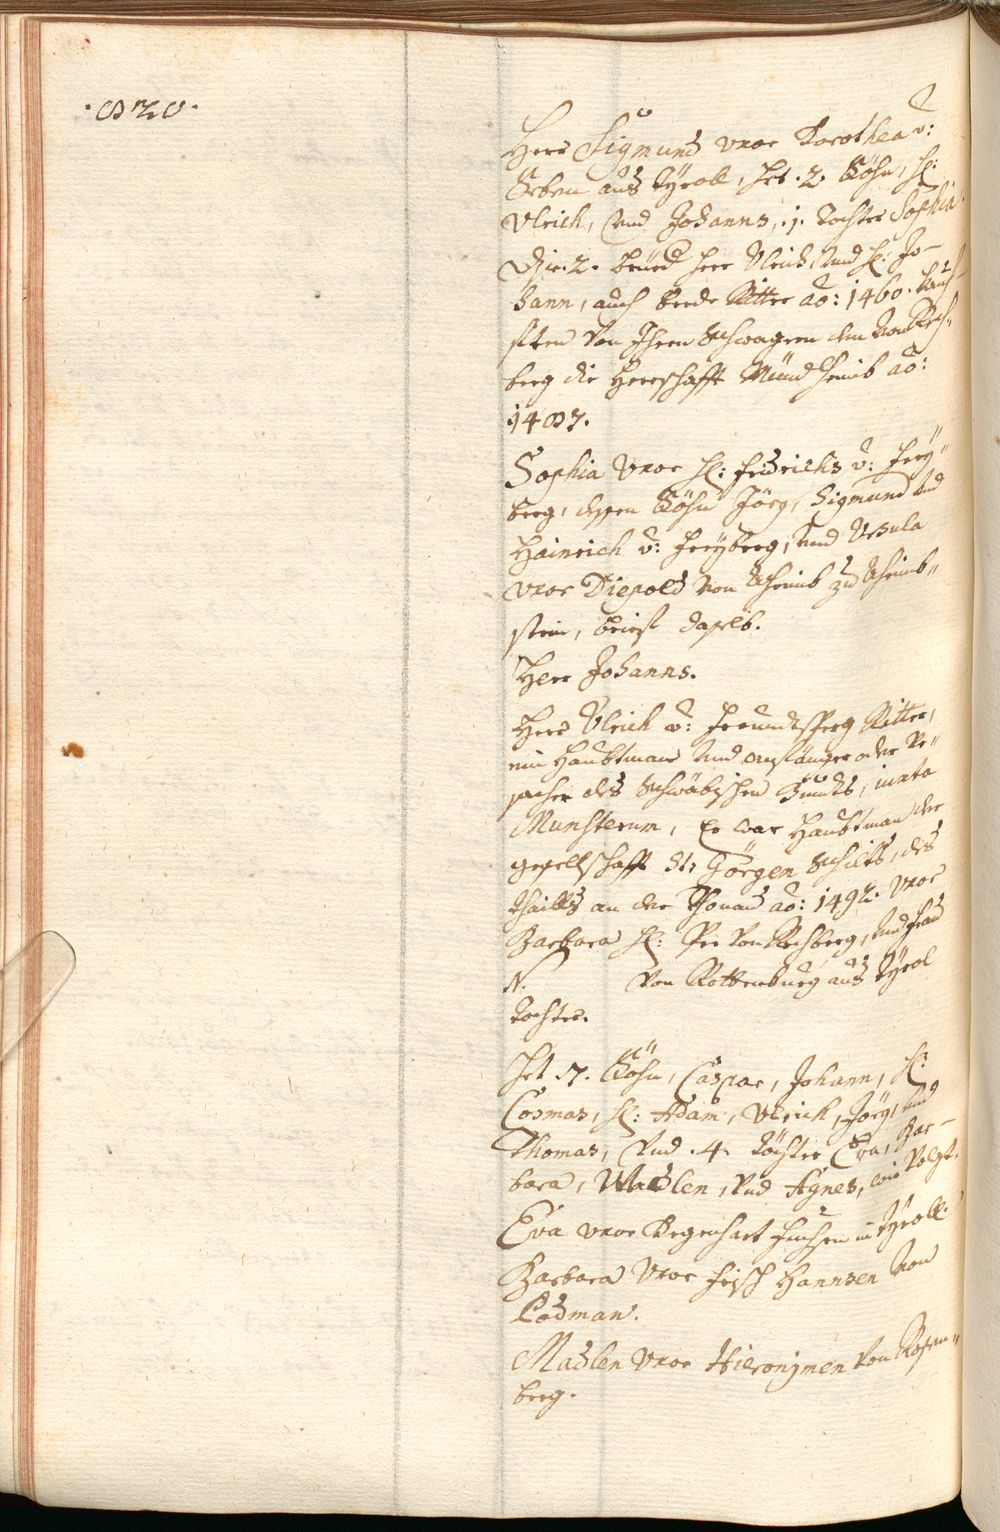 ·820·
Herr Sigmund uxor Dorothea v:
Erben aus Tyroll, het .2. Söhn, H:
Vlrich, vnd Johanns, .1. Tochter Sophia.
Die .2. brüed: Herr Vlrich, vnd H: Jo-
hann, auch beede Ritter ao: 1460. kauf-
ften von Ihren Schwagern dem von Rech-
berg die Herrschafft Mündlheimb ao:
1487.
Sophia uxor H: Fridrichs v: Frey"
berg, dessen Söhn Jörg, Sigmund vnd
Hainrich v: Freyberg, vnd Vrsula
uxor Diepold von
stein, daselb.
Herr Johanns.
Herr Vlrich v: Freundtsperg Ritter,
ein Haubtmann vnd anfänger oder
des Schwäbischen Bundts, iuxta
Munsterum, Er war Haubtman der
gesellschafft St: Görgen Schilts, des
thaills an der Thonau ao: 1492. uxor
Barbara H: von Rechberg, vnd Frau
N. von Rottenburg aus Tyrol
Tochter.
Het .7. Söhn, Caspar, Johann, H:
Cosmas, H: Adam, Vlrich, Jörg, vnd
Thomas, Vnd .4. Töchter Eva, Bar-
bara, Madlen, vnd Agnes, wie volgt.
Eva uxor Degenhart Fuchsen in Tyroll.
Barbara Vxor Frisch Hannsen von
Bodman.
Madlen uxor Hieronymen von Rosen"
berg.